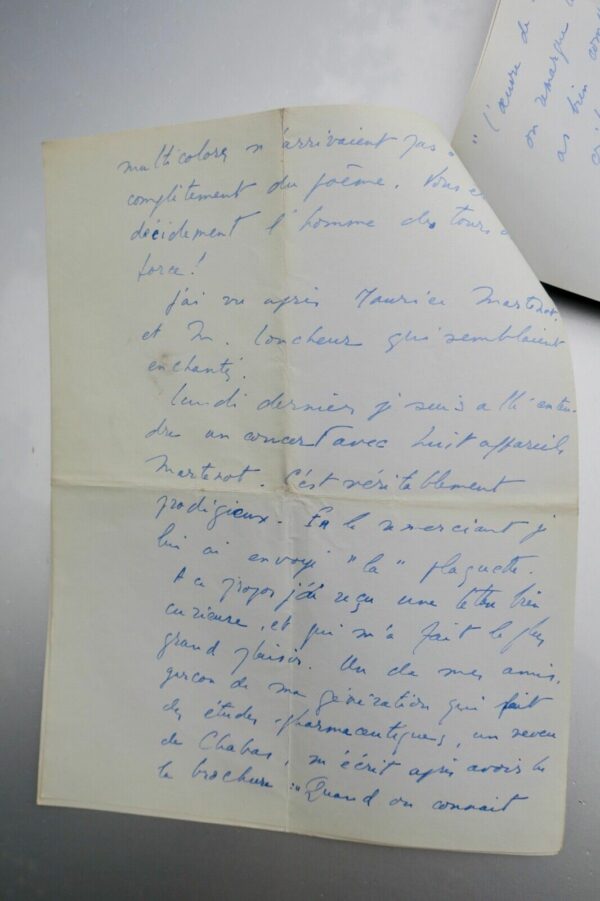 multicolores n'arrivaient pas
complètement du poème. Vous
décidement l'homme des tours
force!
J'ai vu après Maurice Martenot,
et M. Loncheur qui semblaient
enchantés.
Lundi dernier je suis allé enten-
dre un concert avec huit appareils
Martenot. C'est véritablement
prodigieux. En le remerciant je
lui ai envoyé "la" plaquette.
A ce propos j'ai reçu une lettre bien
curieuse, et qui m'a fait le plus
grand plaisir. Un de mes amis,
garçon de ma génération qui fait
des études pharmaceutiques, un neveu
de Chabas, m'écrit après avoir lu
la brochure: "Quand on connait
"l'œuvre de
on remarque
as bien